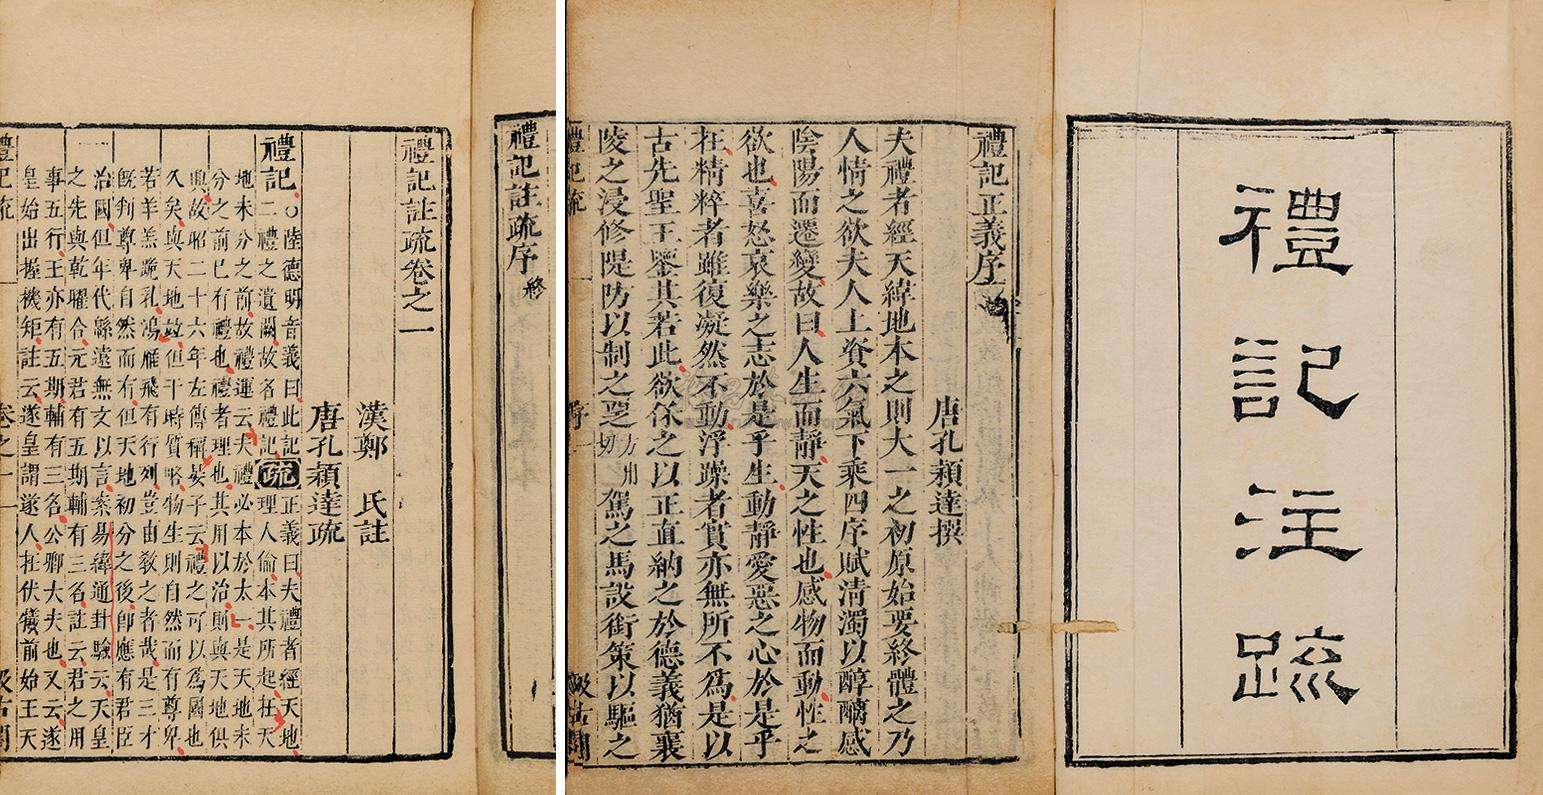 禮記注疏
禮記正義序
唐孔穎達撰
夫禮者經天緯地本之則大一之初原始要終體之乃
人情之欲夫人上資六氣下乘四序賦清濁以醇醨感
陰陽而遷變故曰人生而靜天之性也感物而動性之
欲也喜怒哀樂之志於是乎生動靜愛惡之心於是乎
在精粹者雖復凝然不動浮躁者實亦無所不為是以
古先聖王鑒其若此欲保之以正直納之於德義猶襄
陵之浸修隄防以制之覂方用切駕之馬設銜策以驅之
禮記疏 序 一 汲古閣
禮記註疏序終
禮記註疏卷之一
漢鄭 氏註
唐孔穎達疏
禮記○陸德明音義曰此記
二禮之遺闕故名禮記疏正義曰夫禮者經天地
理人倫本其所起在天
地未分之前故禮運云夫禮必本於太一是天地未
分之前已有禮也禮者理也其用以治則與天地俱
興故昭二十六年左傳稱晏子云禮之可以為國也
久矣與天地並但于時質略物生則自然而有尊卑
若羊羔跪乳鴻雁飛有行列豈由敎之者哉是三才
旣判尊卑自然而有但天地初分之後卽應有君臣
治國但年代緜遠無文以言案易緯通卦驗云天皇
之先與乾曜合元君有五期輔有三名註云君之用
事五行王亦有五期輔有三名公卿大夫也又云遂
皇始出握機矩註云遂皇謂遂人在伏犧前始王天
禮記疏 卷之一 一 汲古閣